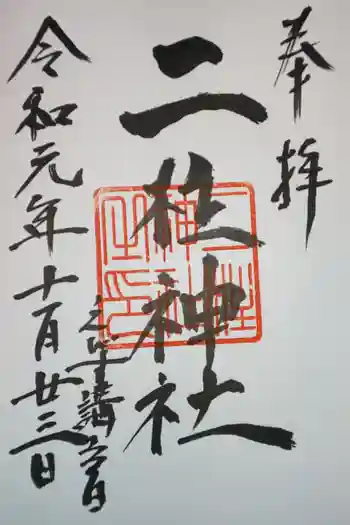 奉拝
二柱神社
令和元年十月廿三日